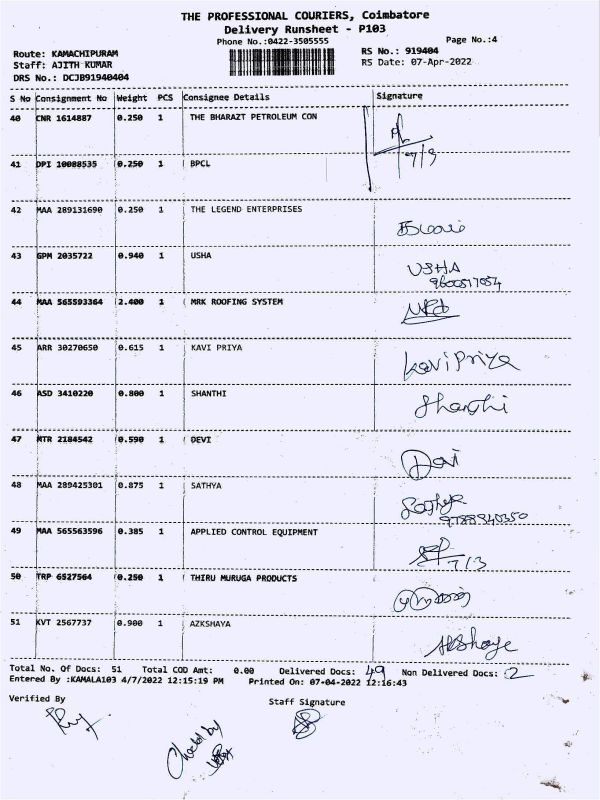 THE PROFESSIONAL COURIERS, Coimbatore
Delivery Runsheet - P103
Phone No.:0422-3505555
Page No.:4
Route: KAMACHIPURAM
RS No.: 919404
Staff: AJITH KUMAR
RS Date: 07-Apr-2022
DRS No.: DCJB91940404
S No Consignment No Weight PCS Consignee Details Signature
40 CNR 1614887 0.250 1 THE BHARAZT PETROLEUM CON
7/3
41 DPI 10088535 0.250 1 BPCL
42 MAA 289131690 0.250 1 THE LEGEND ENTERPRISES
43 GPM 2035722 0.940 1 USHA USHA
44 MAA 565593364 2.400 1 MRK ROOFING SYSTEM
45 ARR 30270650 0.615 1 KAVI PRIYA Kavi Priya
46 ASD 3410220 0.800 1 SHANTHI Shanthi
47 MTR 2184542 0.590 1 DEVI Devi
48 MAA 289425301 0.875 1 SATHYA Sathya
49 MAA 565563596 0.385 1 APPLIED CONTROL EQUIPMENT
7/3
50 TRP 6527564 0.250 1 THIRU MURUGA PRODUCTS
51 KVT 2567737 0.900 1 AZKSHAYA
Total No. Of Docs: 51 Total COD Amt: 0.00 Delivered Docs: 49 Non Delivered Docs: 2
Entered By :KAMALA103 4/7/2022 12:15:19 PM Printed On: 07-04-2022 12:16:43
Verified By
Staff Signature
Checked by